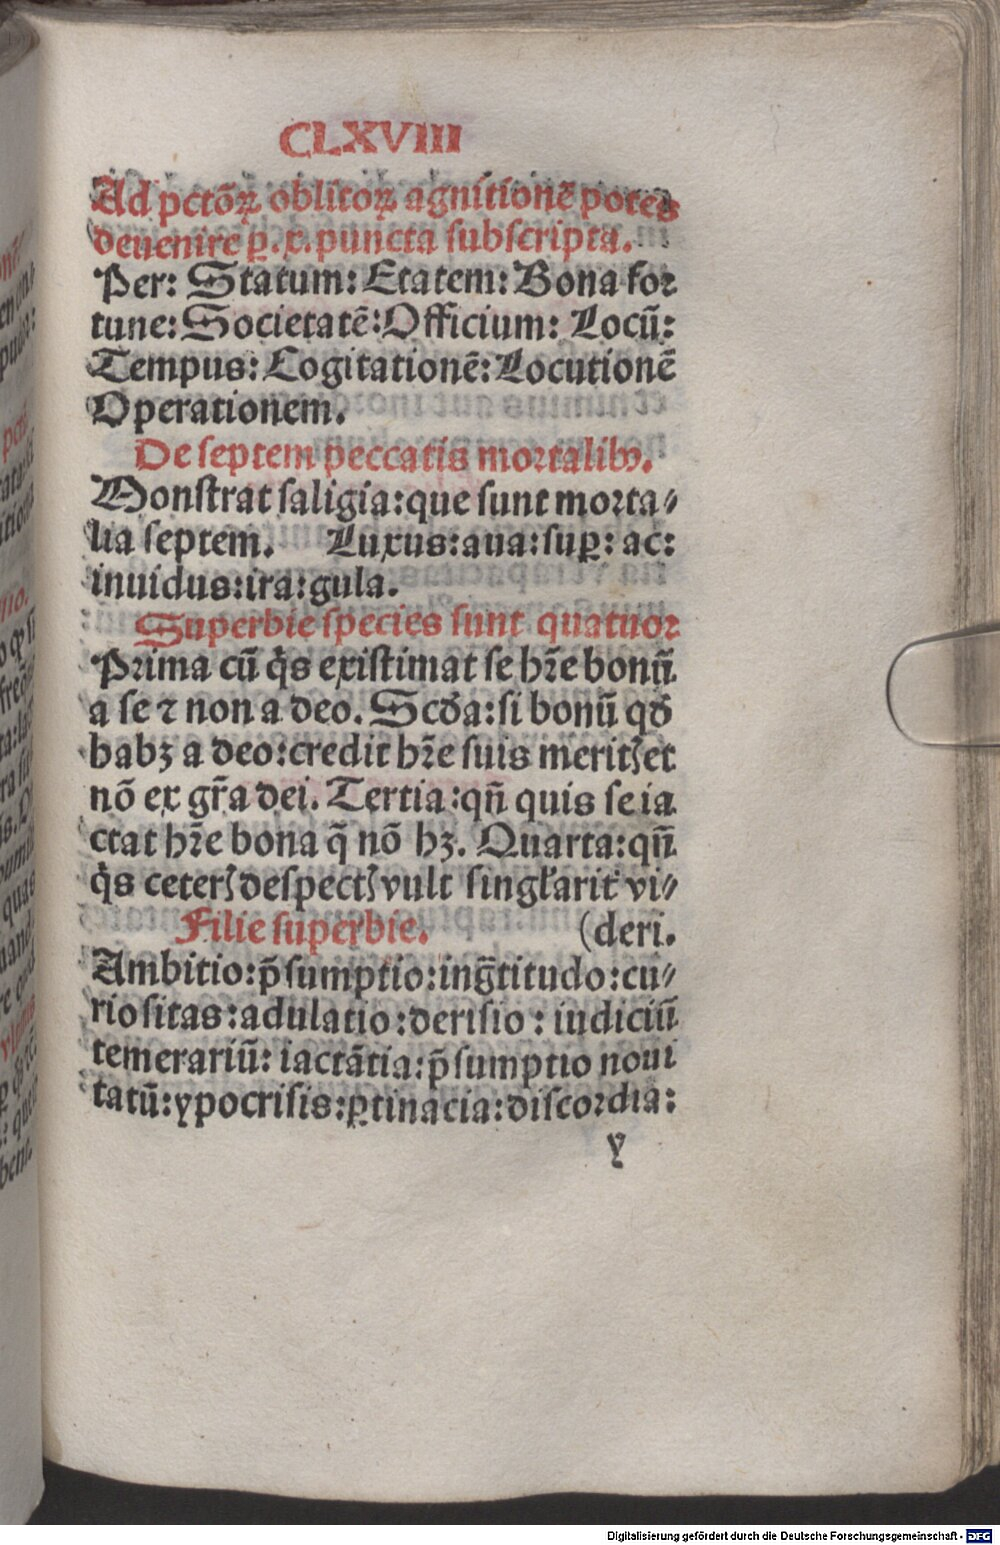 CLXVIII
Ad pctōꝝ oblitoꝝ agnitionē potes
deuenire ꝑ .x. puncta subscripta.
Per: Statum: Etatem: Bona for
tune: Societatē: Officium: Locū:
Tempus: Cogitationē: Locutionē
Operationem.
De septem peccatis mortalibꝰ.
Monstrat saligia: que sunt morta⸗
lia septem. Luxus: aua: suꝑ: ac:
inuidus: ira: gula.
Superbie species sunt quatuor
Prima cū q̇s existimat se hr̄e bonū
a se ⁊ non a deo. Scđa: si bonū qđ
habꝫ a deo: credit hr̄e suis meritꝭ et
nō ex gr̄a dei. Tertia: qn̄ quis se ia
ctat hr̄e bona q̄ nō hꝫ. Quarta: qn̄
q̇s ceterꝭ despectꝭ vult singlarit̄ vi⸗
Filie superbie. (deri.
Ambitio: p̄sumptio: ingr̄titudo: cu⸗
riositas: adulatio: derisio: iudiciū
temerariū: iactātia: p̄sumptio noui
tatū: ypocrisis: ꝑtinacia: discordia:
y
Digitalisierung gefördert durch die Deutsche Forschungsgemeinschaft - DFG